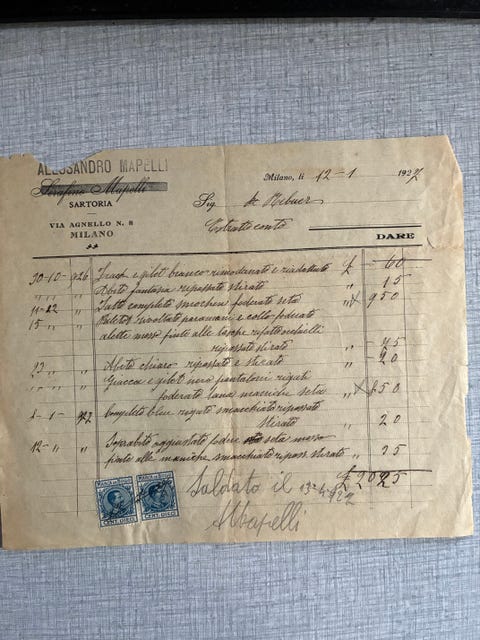 ALESSANDRO MAPELLI
Serafino Mapelli
SARTORIA
VIA AGNELLO N. 8
MILANO
Milano, li 12-1 1927
Sig.
Estratto conto
DARE
30-10-926 Frack e gilet bianco rimodernato e riadattato £ 60
" " " Abito fantasia ripassato stirato " 15
11-12 " completo smocken foderato seta " 950
15 " " Paletot rivoltato paramani e collo foderato
alette messo finte alle tasche rifatto occhielli
ripassato stirato " 75
23 " " Abito chiaro ripassato e stirato " 20
" " " Giacca e gilet nero pantaloni rigati
foderato lana maniche seta " 850
1-1-927 Completo bleu rigato smacchiato ripassato
stirato " 20
12-" " Soprabito aggiustato fodere seta messo
finte alle maniche smacchiato ripass. stirato " 35
£ 2025
Saldato il 13-4-927
AMapelli
CENT. DIECI CENT. DIECI